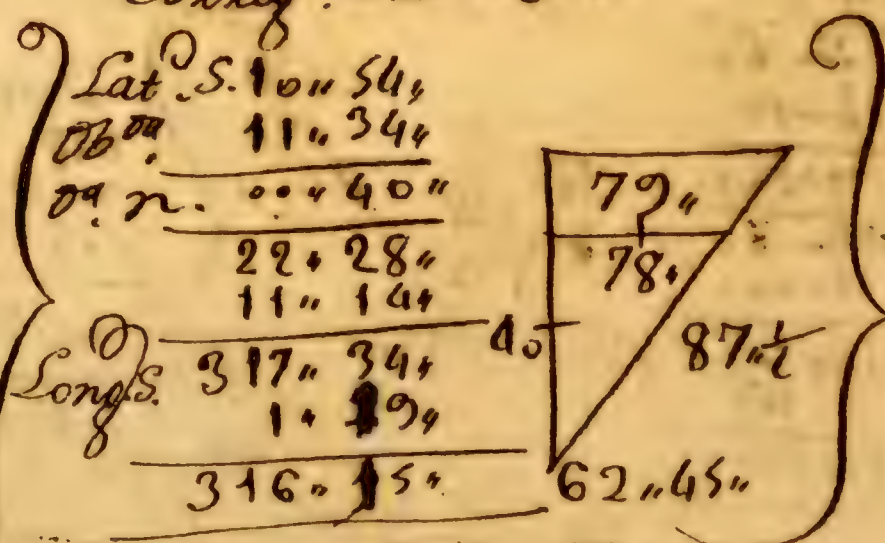 Lat. S. 10,, 54,,
Ob.da 11,, 34,,
da. n. 00,, 40,,
22,, 28,,
11,, 14,,
Long S. 317,, 34,,
1,, 19,,
316,, 15,,
79,,
78,,
40
87,,½
62,,45,,